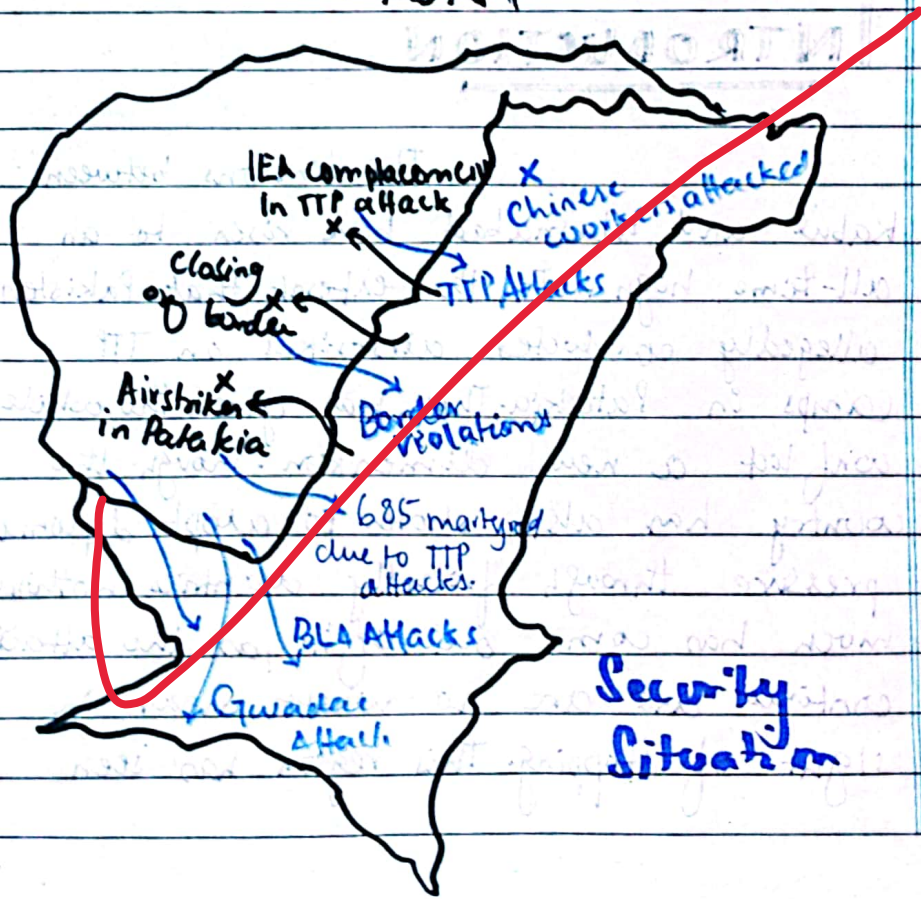 IEA complacency
In TTP attack
Chinese
workers attacked
TTP Attacks
Closing
of border
Airstrikes
in Patakia
Border
violations
685 martyred
due to TTP
attacks.
BLA Attacks
Gwadar
Attack.
Security
Situation